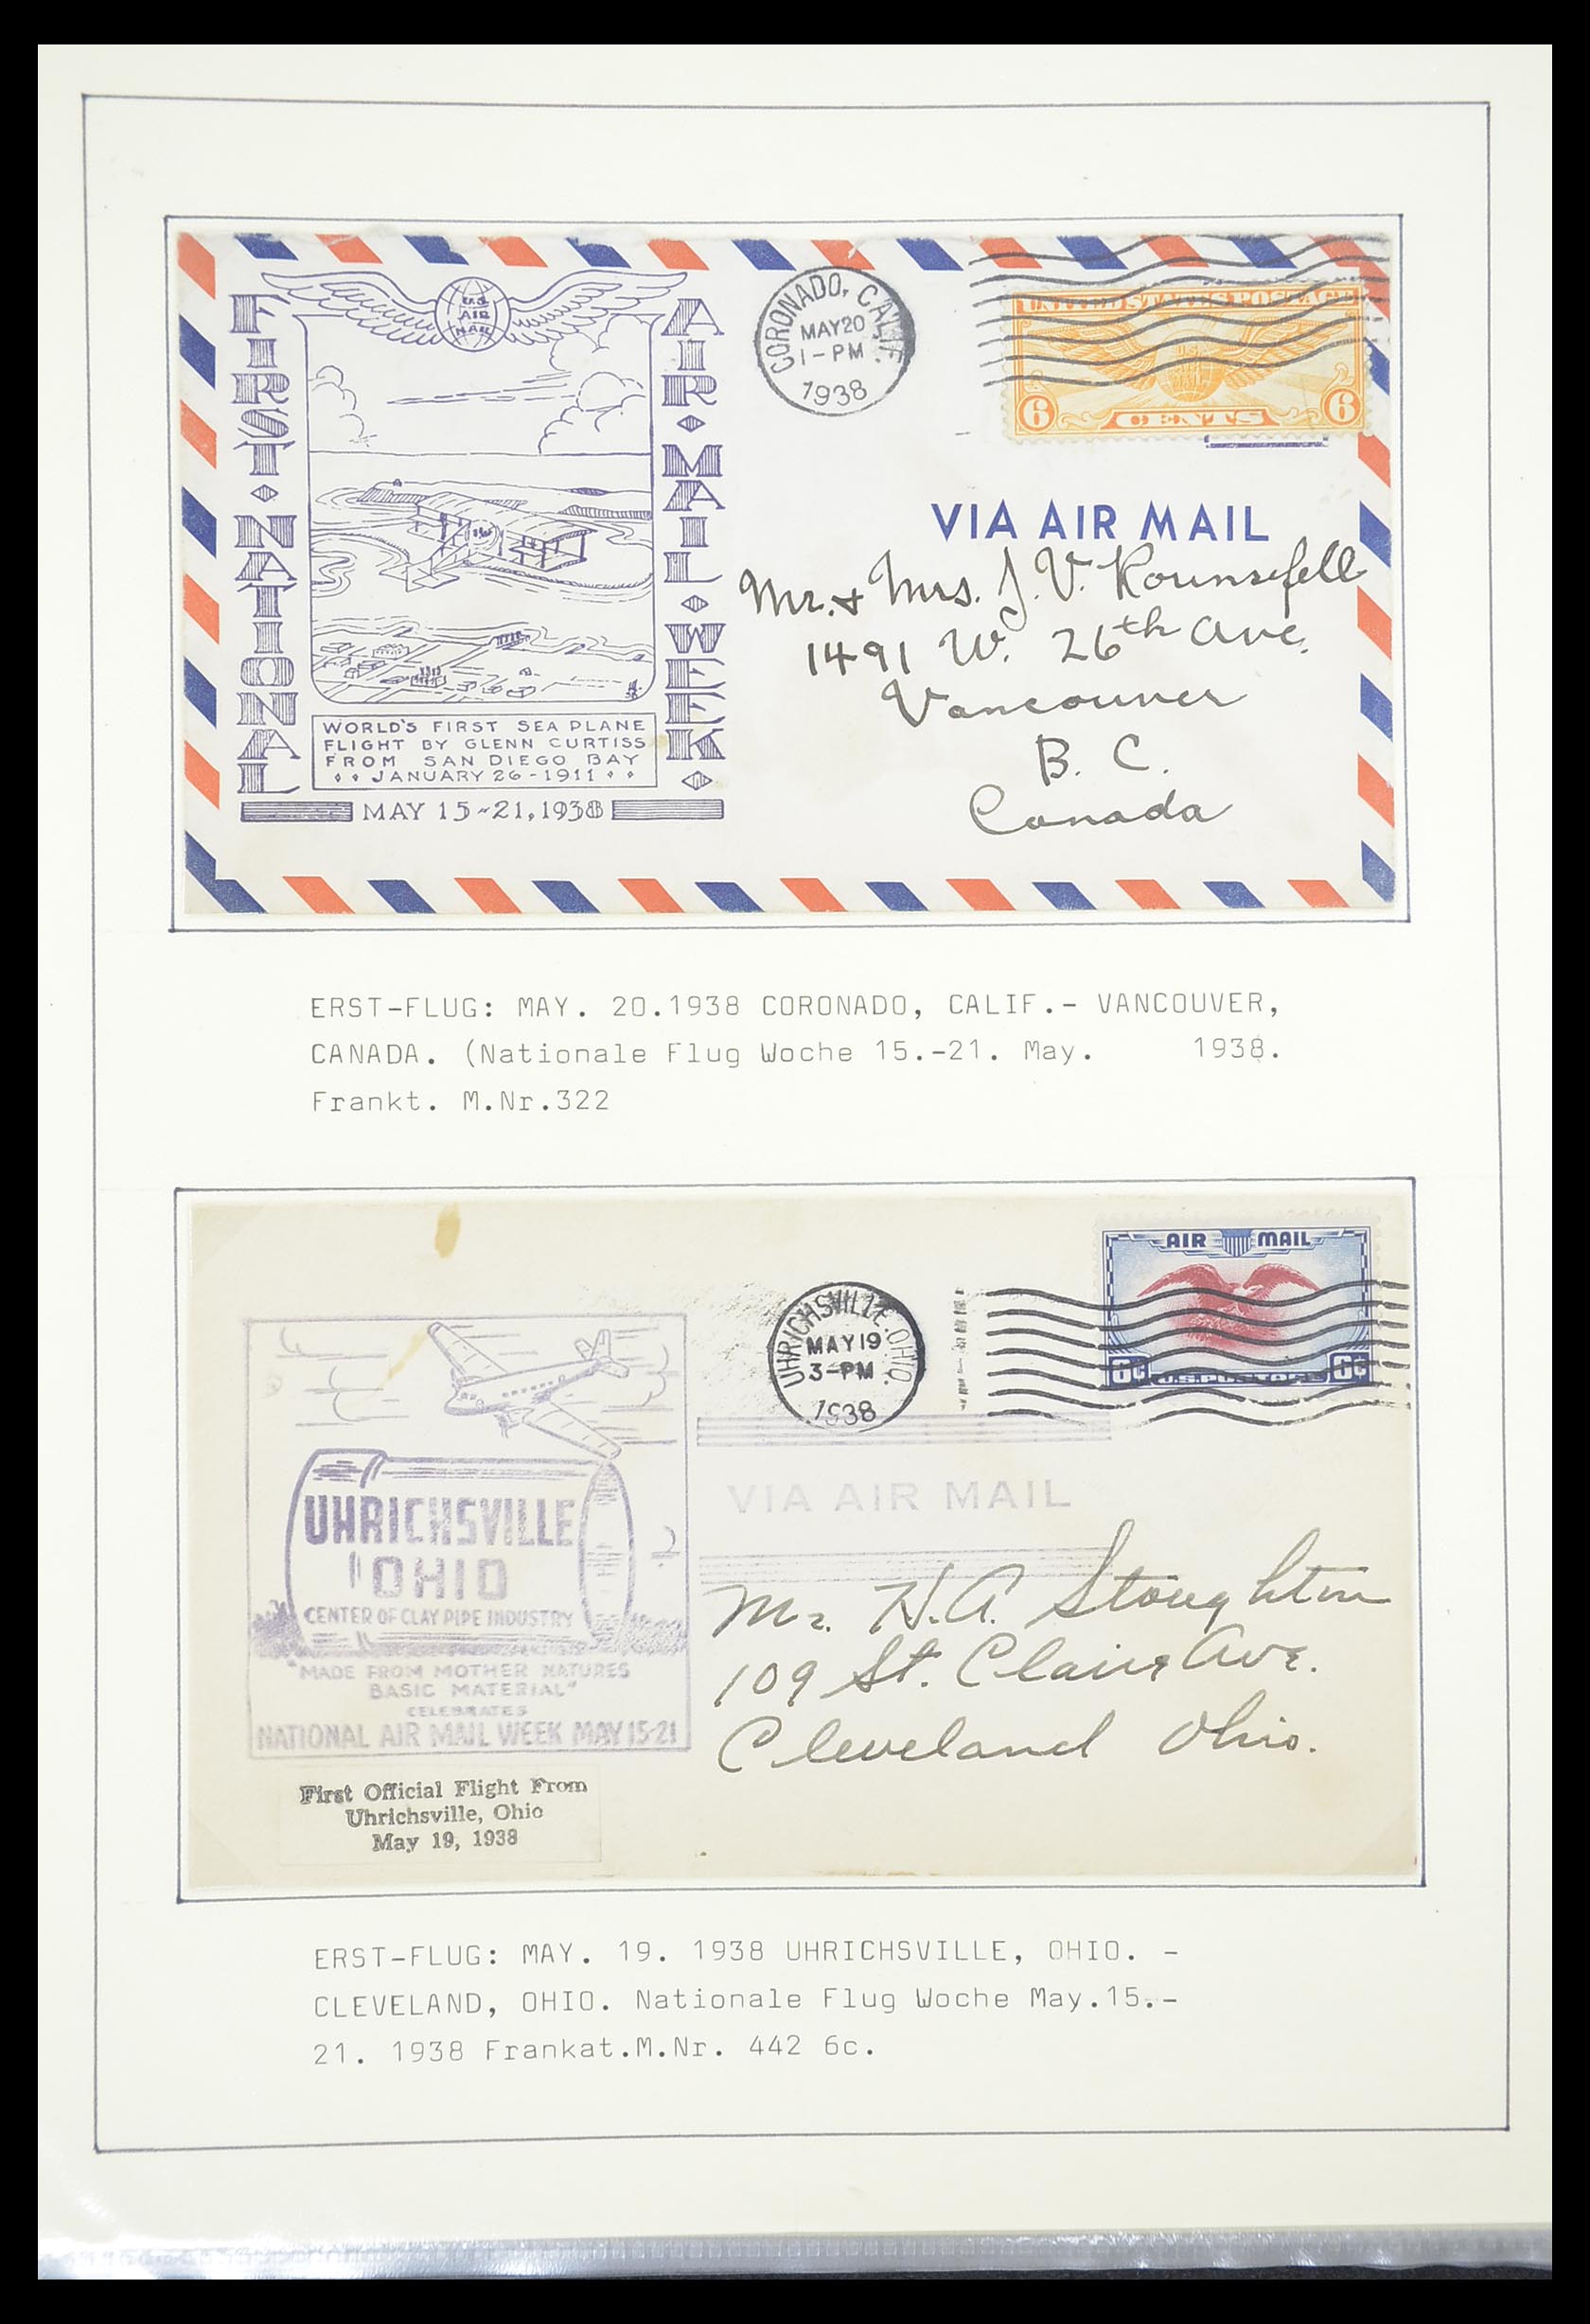 FIRST·NATIONAL
AIR·MAIL·WEEK·
U.S.
AIR
MAIL
WORLD'S FIRST SEA PLANE
FLIGHT BY GLENN CURTISS
FROM SAN DIEGO BAY
JANUARY 26-1911
MAY 15~21, 1938
CORONADO, CALIF.
MAY 20
1-PM
1938
UNITED STATES POSTAGE
6 CENTS 6
VIA AIR MAIL
Mr. + Mrs. J. V. Rounsefell
1491 W. 26th Ave.
Vancouver
B. C.
Canada
ERST-FLUG: MAY. 20.1938 CORONADO, CALIF.- VANCOUVER,
CANADA. (Nationale Flug Woche 15.-21. May. 1938.
Frankt. M.Nr.322
AIR MAIL
6¢ U.S. POSTAGE 6¢
UHRICHSVILLE, OHIO.
MAY 19
3-PM
1938
VIA AIR MAIL
UHRICHSVILLE
OHIO
CENTER OF CLAY PIPE INDUSTRY
"MADE FROM MOTHER NATURES
BASIC MATERIAL"
CELEBRATES
NATIONAL AIR MAIL WEEK MAY 15-21
Mr. H. A. Stoughton
109 St. Claire Ave.
Cleveland Ohio.
First Official Flight From
Uhrichsville, Ohio
May 19, 1938
ERST-FLUG: MAY. 19. 1938 UHRICHSVILLE, OHIO. -
CLEVELAND, OHIO. Nationale Flug Woche May.15.-
21. 1938 Frankat.M.Nr. 442 6c.